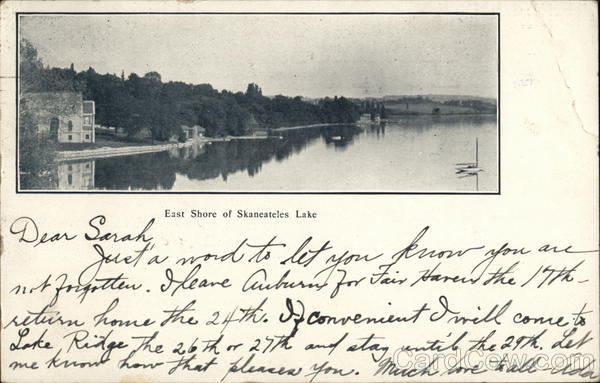 East Shore of Skaneateles Lake
Dear Sarah
Just a word to let you know you are
not forgotten. I leave Auburn for Fair Haven the 17th-
return home the 24th. If convenient I will come to
Lake Ridge the 26th or 27th and stay until the 29th. Let
me know how that pleases you. Much love to all- Ada
CardCow.com